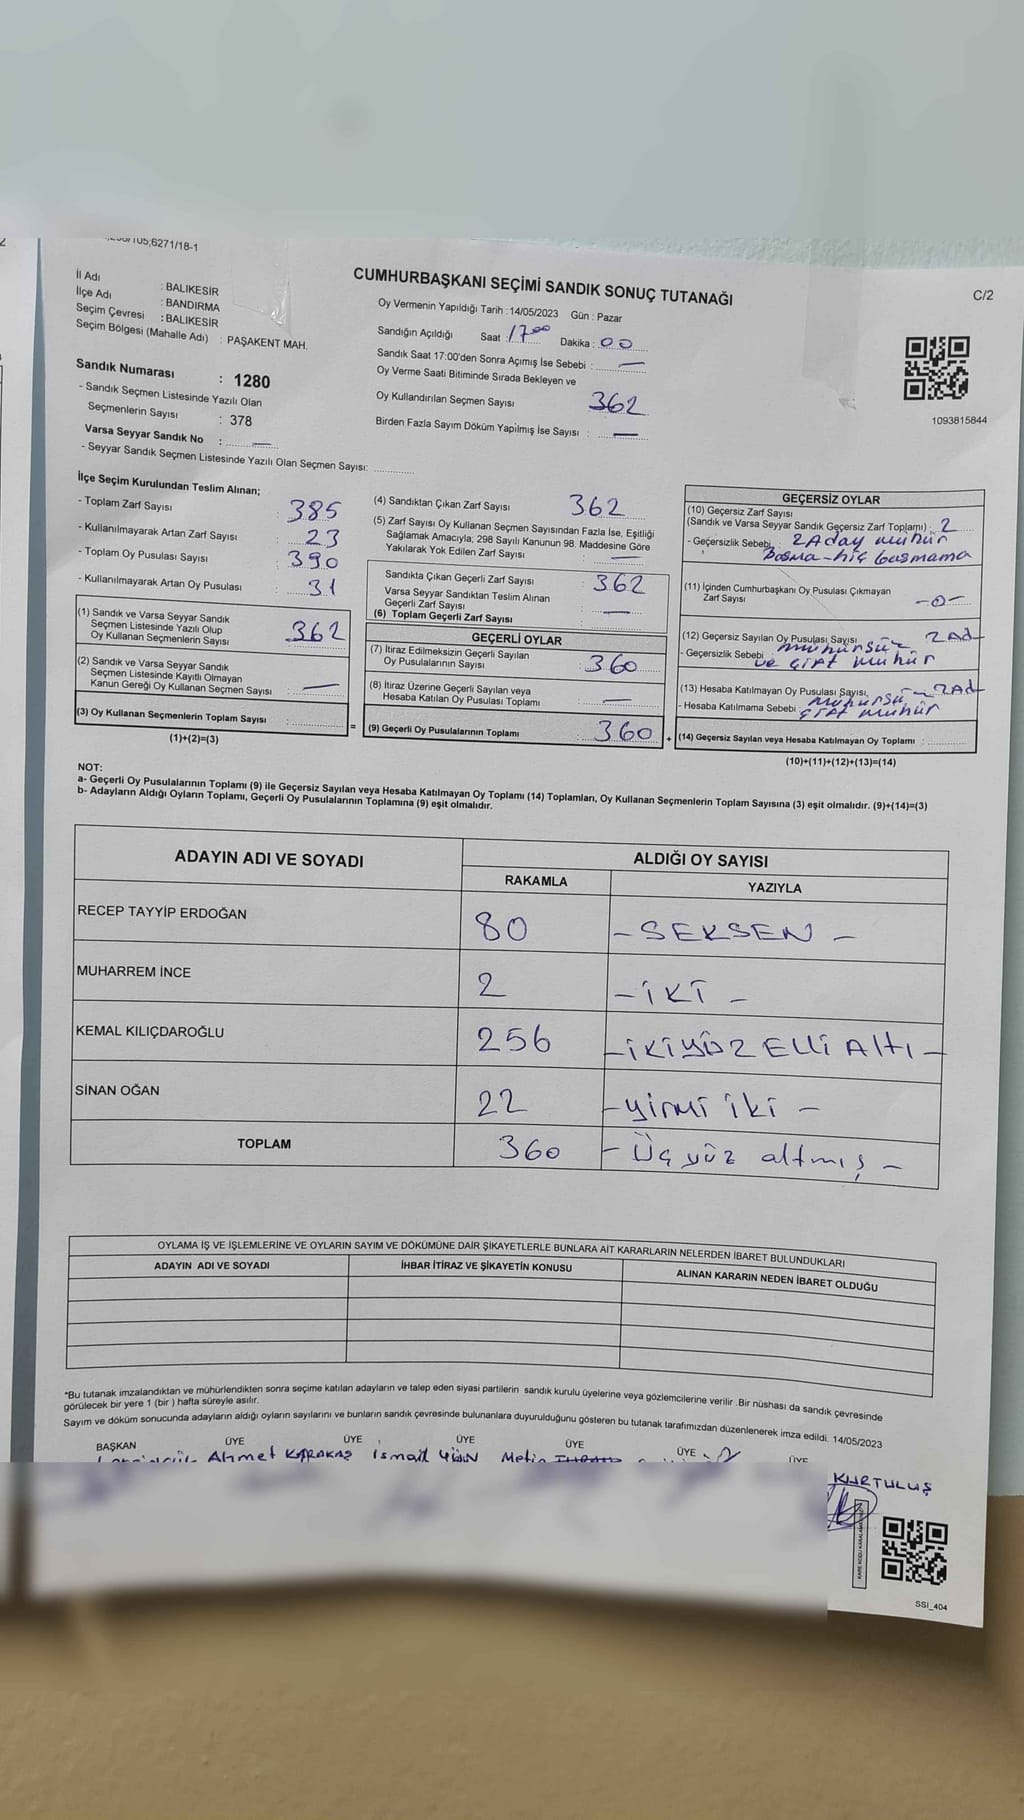 6271/18-1
İl Adı : BALIKESİR
İlçe Adı : BANDIRMA
Seçim Çevresi : BALIKESİR
Seçim Bölgesi (Mahalle Adı) : PAŞAKENT MAH.
Sandık Numarası : 1280
- Sandık Seçmen Listesinde Yazılı Olan
Seçmenlerin Sayısı : 378
Varsa Seyyar Sandık No : —
- Seyyar Sandık Seçmen Listesinde Yazılı Olan Seçmen Sayısı:
CUMHURBAŞKANI SEÇİMİ SANDIK SONUÇ TUTANAĞI
Oy Vermenin Yapıldığı Tarih : 14/05/2023 Gün : Pazar
Sandığın Açıldığı Saat : 17⁰⁰ Dakika : 00
Sandık Saat 17:00'den Sonra Açımış İse Sebebi : —
Oy Verme Saati Bitiminde Sırada Bekleyen ve
Oy Kullandırılan Seçmen Sayısı 362
Birden Fazla Sayım Döküm Yapılmış İse Sayısı : —
C/2
1093815844
İlçe Seçim Kurulundan Teslim Alınan;
- Toplam Zarf Sayısı : 385
- Kullanılmayarak Artan Zarf Sayısı : 23
- Toplam Oy Pusulası Sayısı : 390
- Kullanılmayarak Artan Oy Pusulası : 31
(1) Sandık ve Varsa Seyyar Sandık
Seçmen Listesinde Yazılı Olup
Oy Kullanan Seçmenlerin Sayısı : 362
(2) Sandık ve Varsa Seyyar Sandık
Seçmen Listesinde Kayıtlı Olmayan
Kanun Gereği Oy Kullanan Seçmen Sayısı : —
(3) Oy Kullanan Seçmenlerin Toplam Sayısı :
(1)+(2)=(3)
(4) Sandıktan Çıkan Zarf Sayısı : 362
(5) Zarf Sayısı Oy Kullanan Seçmen Sayısından Fazla İse, Eşitliği
Sağlamak Amacıyla; 298 Sayılı Kanunun 98. Maddesine Göre
Yakılarak Yok Edilen Zarf Sayısı : —
Sandıkta Çıkan Geçerli Zarf Sayısı : 362
Varsa Seyyar Sandıktan Teslim Alınan
Geçerli Zarf Sayısı : —
(6) Toplam Geçerli Zarf Sayısı
GEÇERLİ OYLAR
(7) İtiraz Edilmeksizin Geçerli Sayılan
Oy Pusulalarının Sayısı : 360
(8) İtiraz Üzerine Geçerli Sayılan veya
Hesaba Katılan Oy Pusulası Toplamı : —
= (9) Geçerli Oy Pusulalarının Toplamı : 360 +
GEÇERSİZ OYLAR
(10) Geçersiz Zarf Sayısı
(Sandık ve Varsa Seyyar Sandık Geçersiz Zarf Toplamı) : 2
- Geçersizlik Sebebi : 2 Aday mühür
Basma - hiç basmama
(11) İçinden Cumhurbaşkanı Oy Pusulası Çıkmayan
Zarf Sayısı : -0-
(12) Geçersiz Sayılan Oy Pusulası Sayısı : 2 Ad
- Geçersizlik Sebebi : mühürsüz
ve çift mühür
(13) Hesaba Katılmayan Oy Pusulası Sayısı, 2 Ad
- Hesaba Katılmama Sebebi : mühürsüz
çift mühür
(14) Geçersiz Sayılan veya Hesaba Katılmayan Oy Toplamı :
(10)+(11)+(12)+(13)=(14)
NOT:
a- Geçerli Oy Pusulalarının Toplamı (9) ile Geçersiz Sayılan veya Hesaba Katılmayan Oy Toplamı (14) Toplamları, Oy Kullanan Seçmenlerin Toplam Sayısına (3) eşit olmalıdır. (9)+(14)=(3)
b- Adayların Aldığı Oyların Toplamı, Geçerli Oy Pusulalarının Toplamına (9) eşit olmalıdır.
ADAYIN ADI VE SOYADI ALDIĞI OY SAYISI
RAKAMLA YAZIYLA
RECEP TAYYİP ERDOĞAN 80 - SEKSEN -
MUHARREM İNCE 2 - İKİ -
KEMAL KILIÇDAROĞLU 256 - İKİYÜZ ELLİ ALTI -
SİNAN OĞAN 22 - yirmi iki -
TOPLAM 360 - Üç yüz altmış -
OYLAMA İŞ VE İŞLEMLERİNE VE OYLARIN SAYIM VE DÖKÜMÜNE DAİR ŞİKAYETLERLE BUNLARA AİT KARARLARIN NELERDEN İBARET BULUNDUKLARI
ADAYIN ADI VE SOYADI İHBAR İTİRAZ VE ŞİKAYETİN KONUSU ALINAN KARARIN NEDEN İBARET OLDUĞU
*Bu tutanak imzalandıktan ve mühürlendikten sonra seçime katılan adayların ve talep eden siyasi partilerin sandık kurulu üyelerine veya gözlemcilerine verilir .Bir nüshası da sandık çevresinde
görülecek bir yere 1 (bir ) hafta süreyle asılır.
Sayım ve döküm sonucunda adayların aldığı oyların sayılarını ve bunların sandık çevresinde bulunanlara duyurulduğunu gösteren bu tutanak tarafımızdan düzenlenerek imza edildi. 14/05/2023
BAŞKAN ÜYE ÜYE ÜYE ÜYE ÜYE ÜYE
Ahmet KARAKAŞ İsmail Metin
KURTULUŞ
SSI_404